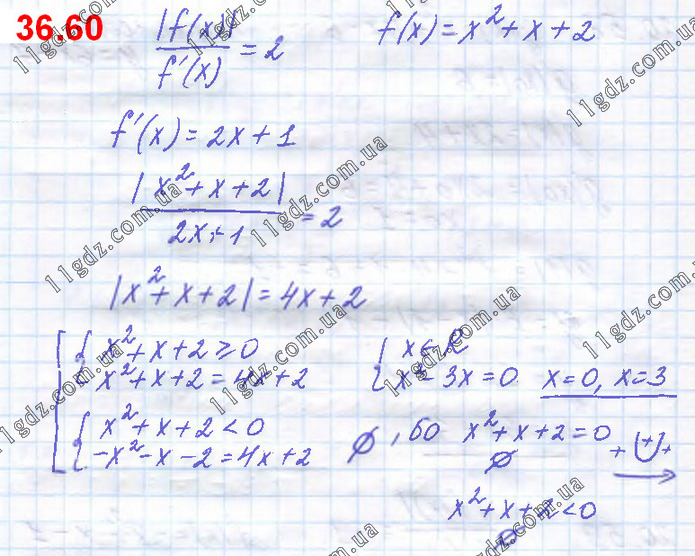 36.60
|f(x)|/f'(x) = 2    f(x) = x² + x + 2
f'(x) = 2x + 1
|x² + x + 2|/2x + 1 = 2
|x² + x + 2| = 4x + 2
[ { x² + x + 2 ≥ 0    { x ∈ R
x² + x + 2 = 4x + 2    x² - 3x = 0    x = 0, x = 3
{ x² + x + 2 < 0    ∅, бо x² + x + 2 = 0
-x² - x - 2 = 4x + 2    ∅    + + +
x² + x + 2 < 0
∅
11gdz.com.ua